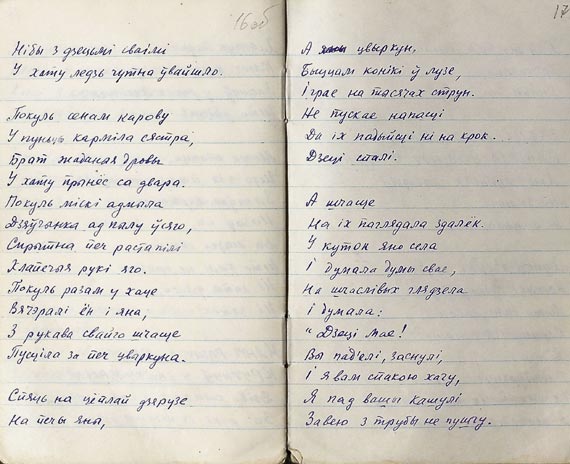 16об
Нібы з дзецьмі сваімі
У хату ледзь чутна ўвайшло.
Покуль сенам карову
У пуньцы карміла сястра,
Брат жаданыя дровы
У хату прынёс са двара.
Покуль міскі адмыла
Дзяўчынка ад пылу ўсяго,
Спрытна печ растапілі
Хлапечыя рукі яго.
Покуль разам у хаце
Вячэралі ён і яна,
З рукава свайго шчасце
Пусціла за печ цвыркуна.
Спяць на цёплай дзярузе
На печы яны,
17
А цвыркун,
Быццам конікі ў лузе,
Іграе на тысячах струн.
Не пускае напасці
Да іх падыйсці ні на крок.
Дзеці спалі.
А шчасце
На іх паглядала здалёк.
У куток яно села
І думала думы свае,
На шчаслівых глядзела
І думала:
"Дзеці мае!
Вы пад'елі, заснулі,
І я вам спакою хачу,
Я пад вашы кашулі
Завею з трубы не пушчу.